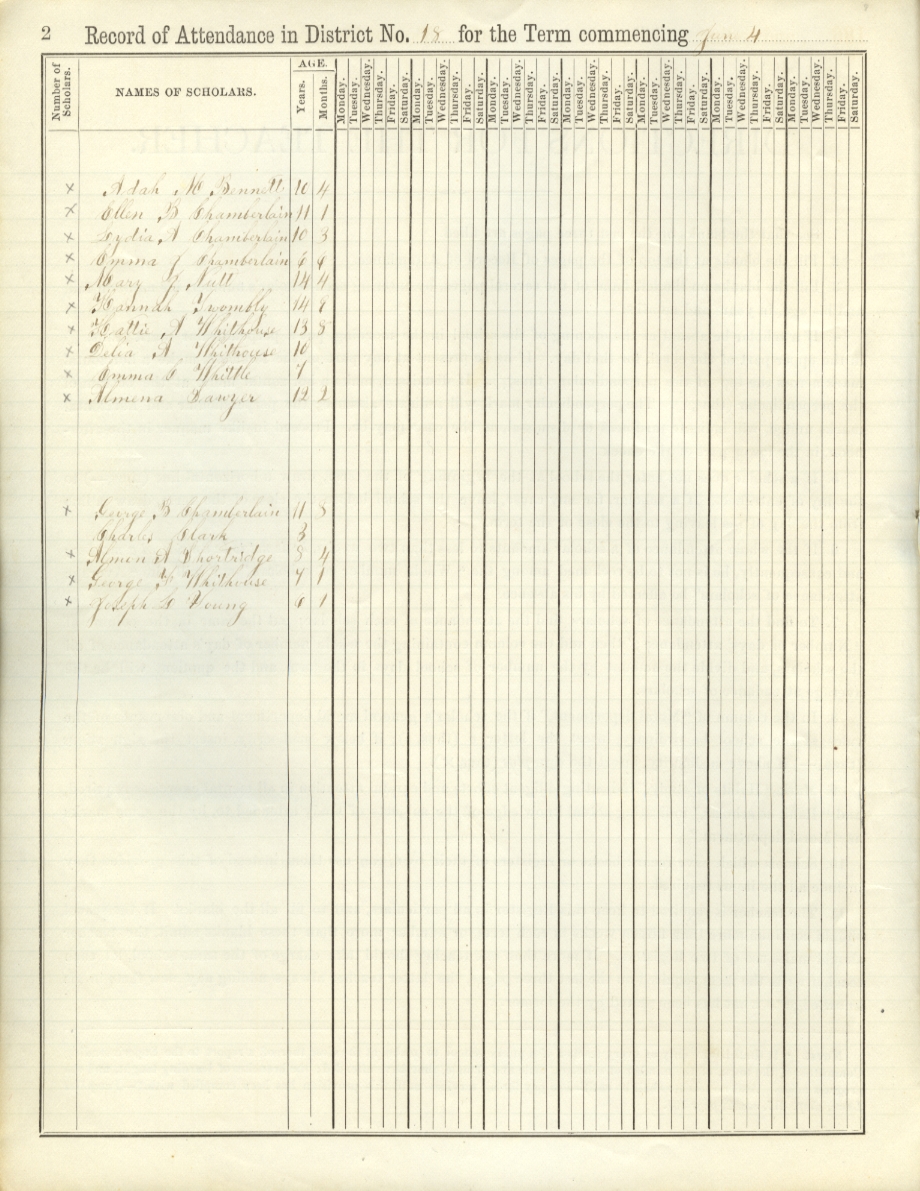 2 Record of Attendance in District No. 18 for the Term commencing 4
Number of Scholars. NAMES OF SCHOLARS. AGE. Years. Months. Monday. Tuesday. Wednesday. Thursday. Friday. Saturday. Monday. Tuesday. Wednesday. Thursday. Friday. Saturday. Monday. Tuesday. Wednesday. Thursday. Friday. Saturday. Monday. Tuesday. Wednesday. Thursday. Friday. Saturday. Monday. Tuesday. Wednesday. Thursday. Friday. Saturday. Monday. Tuesday. Wednesday. Thursday. Friday. Saturday. Monday. Tuesday. Wednesday. Thursday. Friday. Saturday.
x Adah M Bennett 10 4
x Ellen B Chamberlain 11 1
x Lydia A Chamberlain 10 3
x Emma J Chamberlain 6
x Mary J Nutt 14 4
x Hannah Twombly 14
x Hattie A Whithouse 13 8
x Delia A Whithouse 10
x Emma C Whittle 7
x Almena Sawyer 12 2
x George B Chamberlain 11 8
Charles Clark 3
x Almon A Shortridge 8 4
x George F Whithouse 7 1
x Joseph G Young 6 1